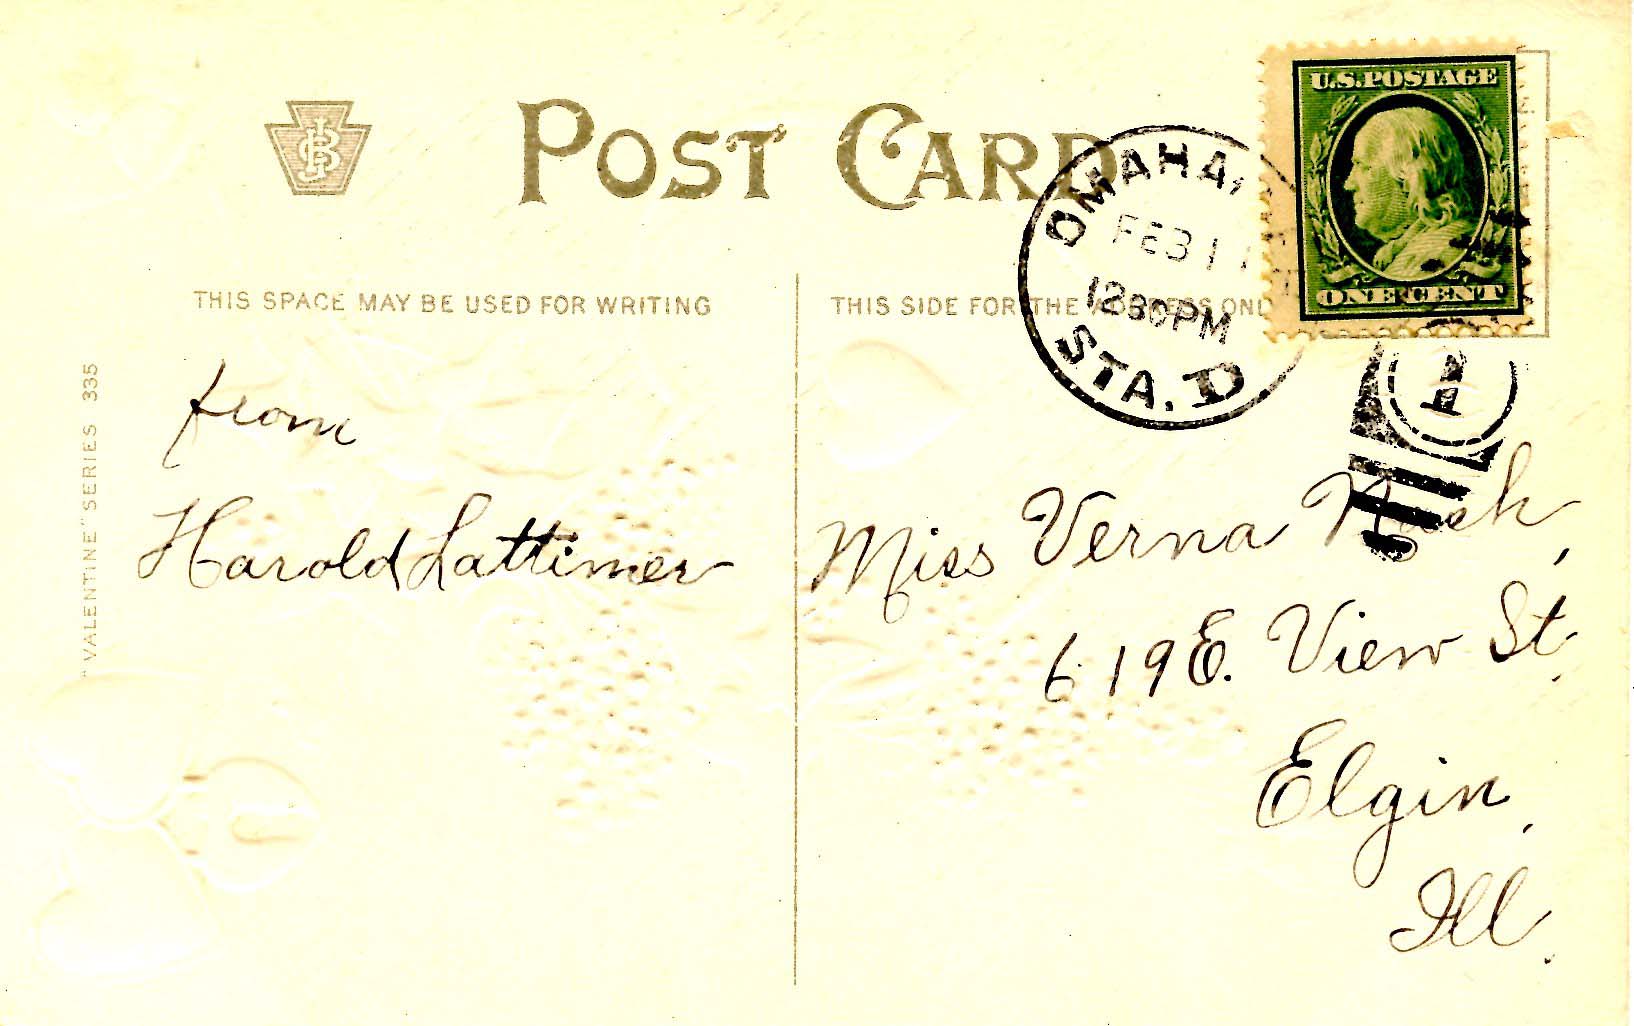 POST CARD
U.S.POSTAGE
ONE CENT
OMAHA,
FEB 11
12 30 PM
STA. D
1
THIS SPACE MAY BE USED FOR WRITING
THIS SIDE FOR THE ADDRESS ONLY
"VALENTINE" SERIES 335
from
Harold Lattimer
Miss Verna Nash,
619 E. View St.
Elgin,
Ill.